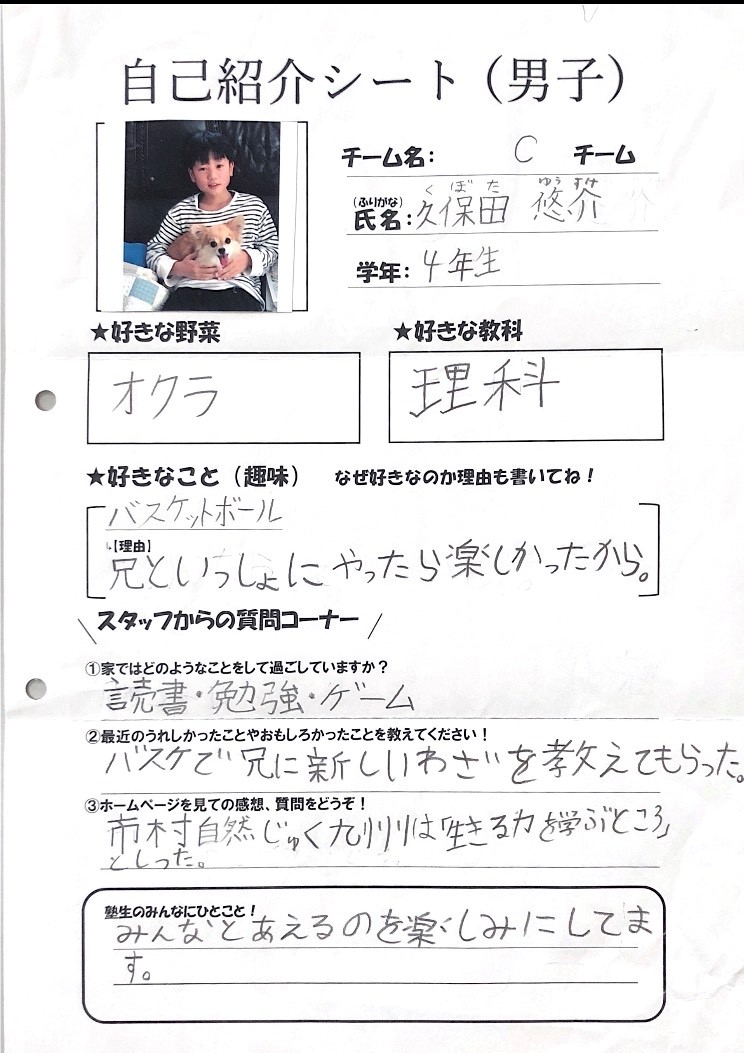 自己紹介シート（男子）
チーム名： C チーム
くぼた ゆうすけ
(ふりがな)
氏名：久保田 悠介
学年：4年生
★好きな野菜 ★好きな教科
オクラ 理科
★好きなこと（趣味） なぜ好きなのか理由も書いてね！
バスケットボール
↳【理由】
兄といっしょにやったら楽しかったから。
スタッフからの質問コーナー
①家ではどのようなことをして過ごしていますか？
読書・勉強・ゲーム
②最近のうれしかったことやおもしろかったことを教えてください！
バスケで兄に新しいわざを教えてもらった。
③ホームページを見ての感想、質問をどうぞ！
市村自然じゅく九州は「生きる力を学ぶところ」
としった。
塾生のみんなにひとこと！
みんなとあえるのを楽しみにしてま
す。